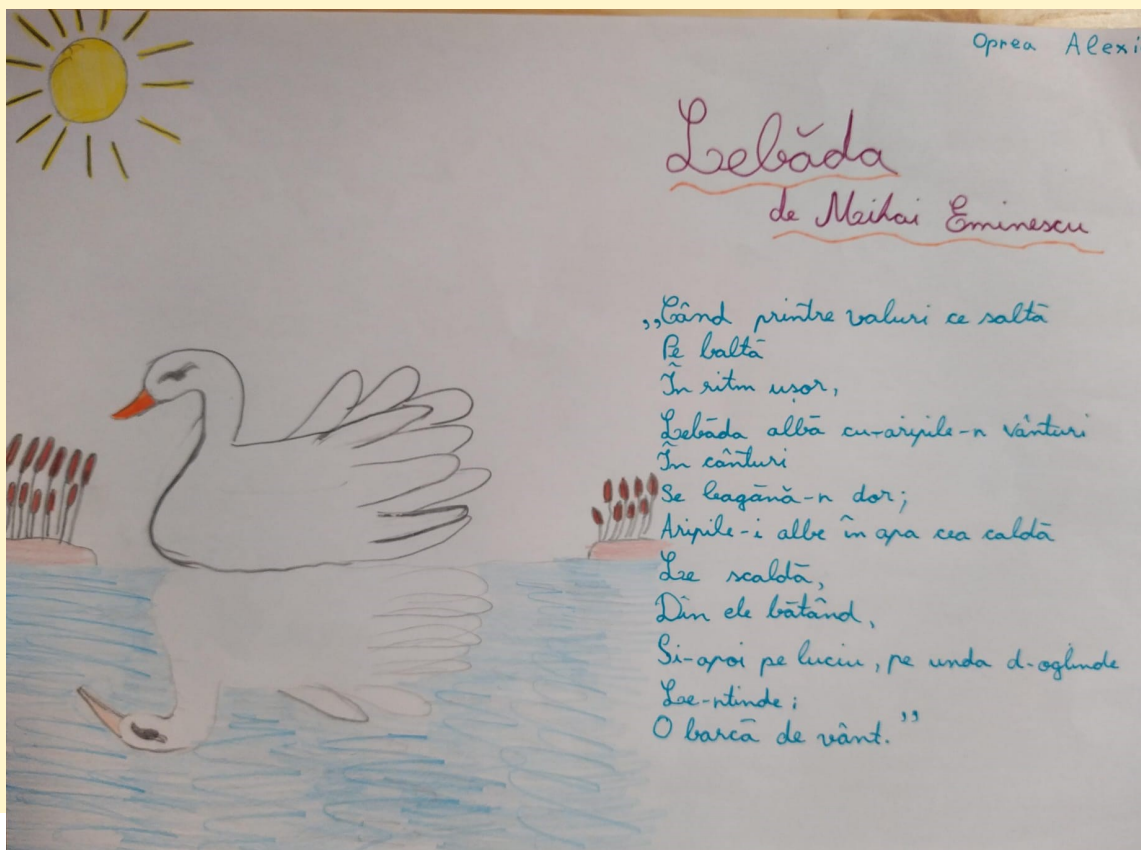 Oprea Alexi
Lebăda
de Mihai Eminescu
„Când printre valuri ce saltă
Pe baltă
În ritm ușor,
Lebăda albă cu-aripile-n vânturi
În cânturi
Se leagănă-n dor;
Aripile-i albe în apa cea caldă
Le scaldă,
Din ele bătând,
Si-apoi pe luciu, pe unda d-oglinde
Le-ntinde;
O barcă de vânt.”